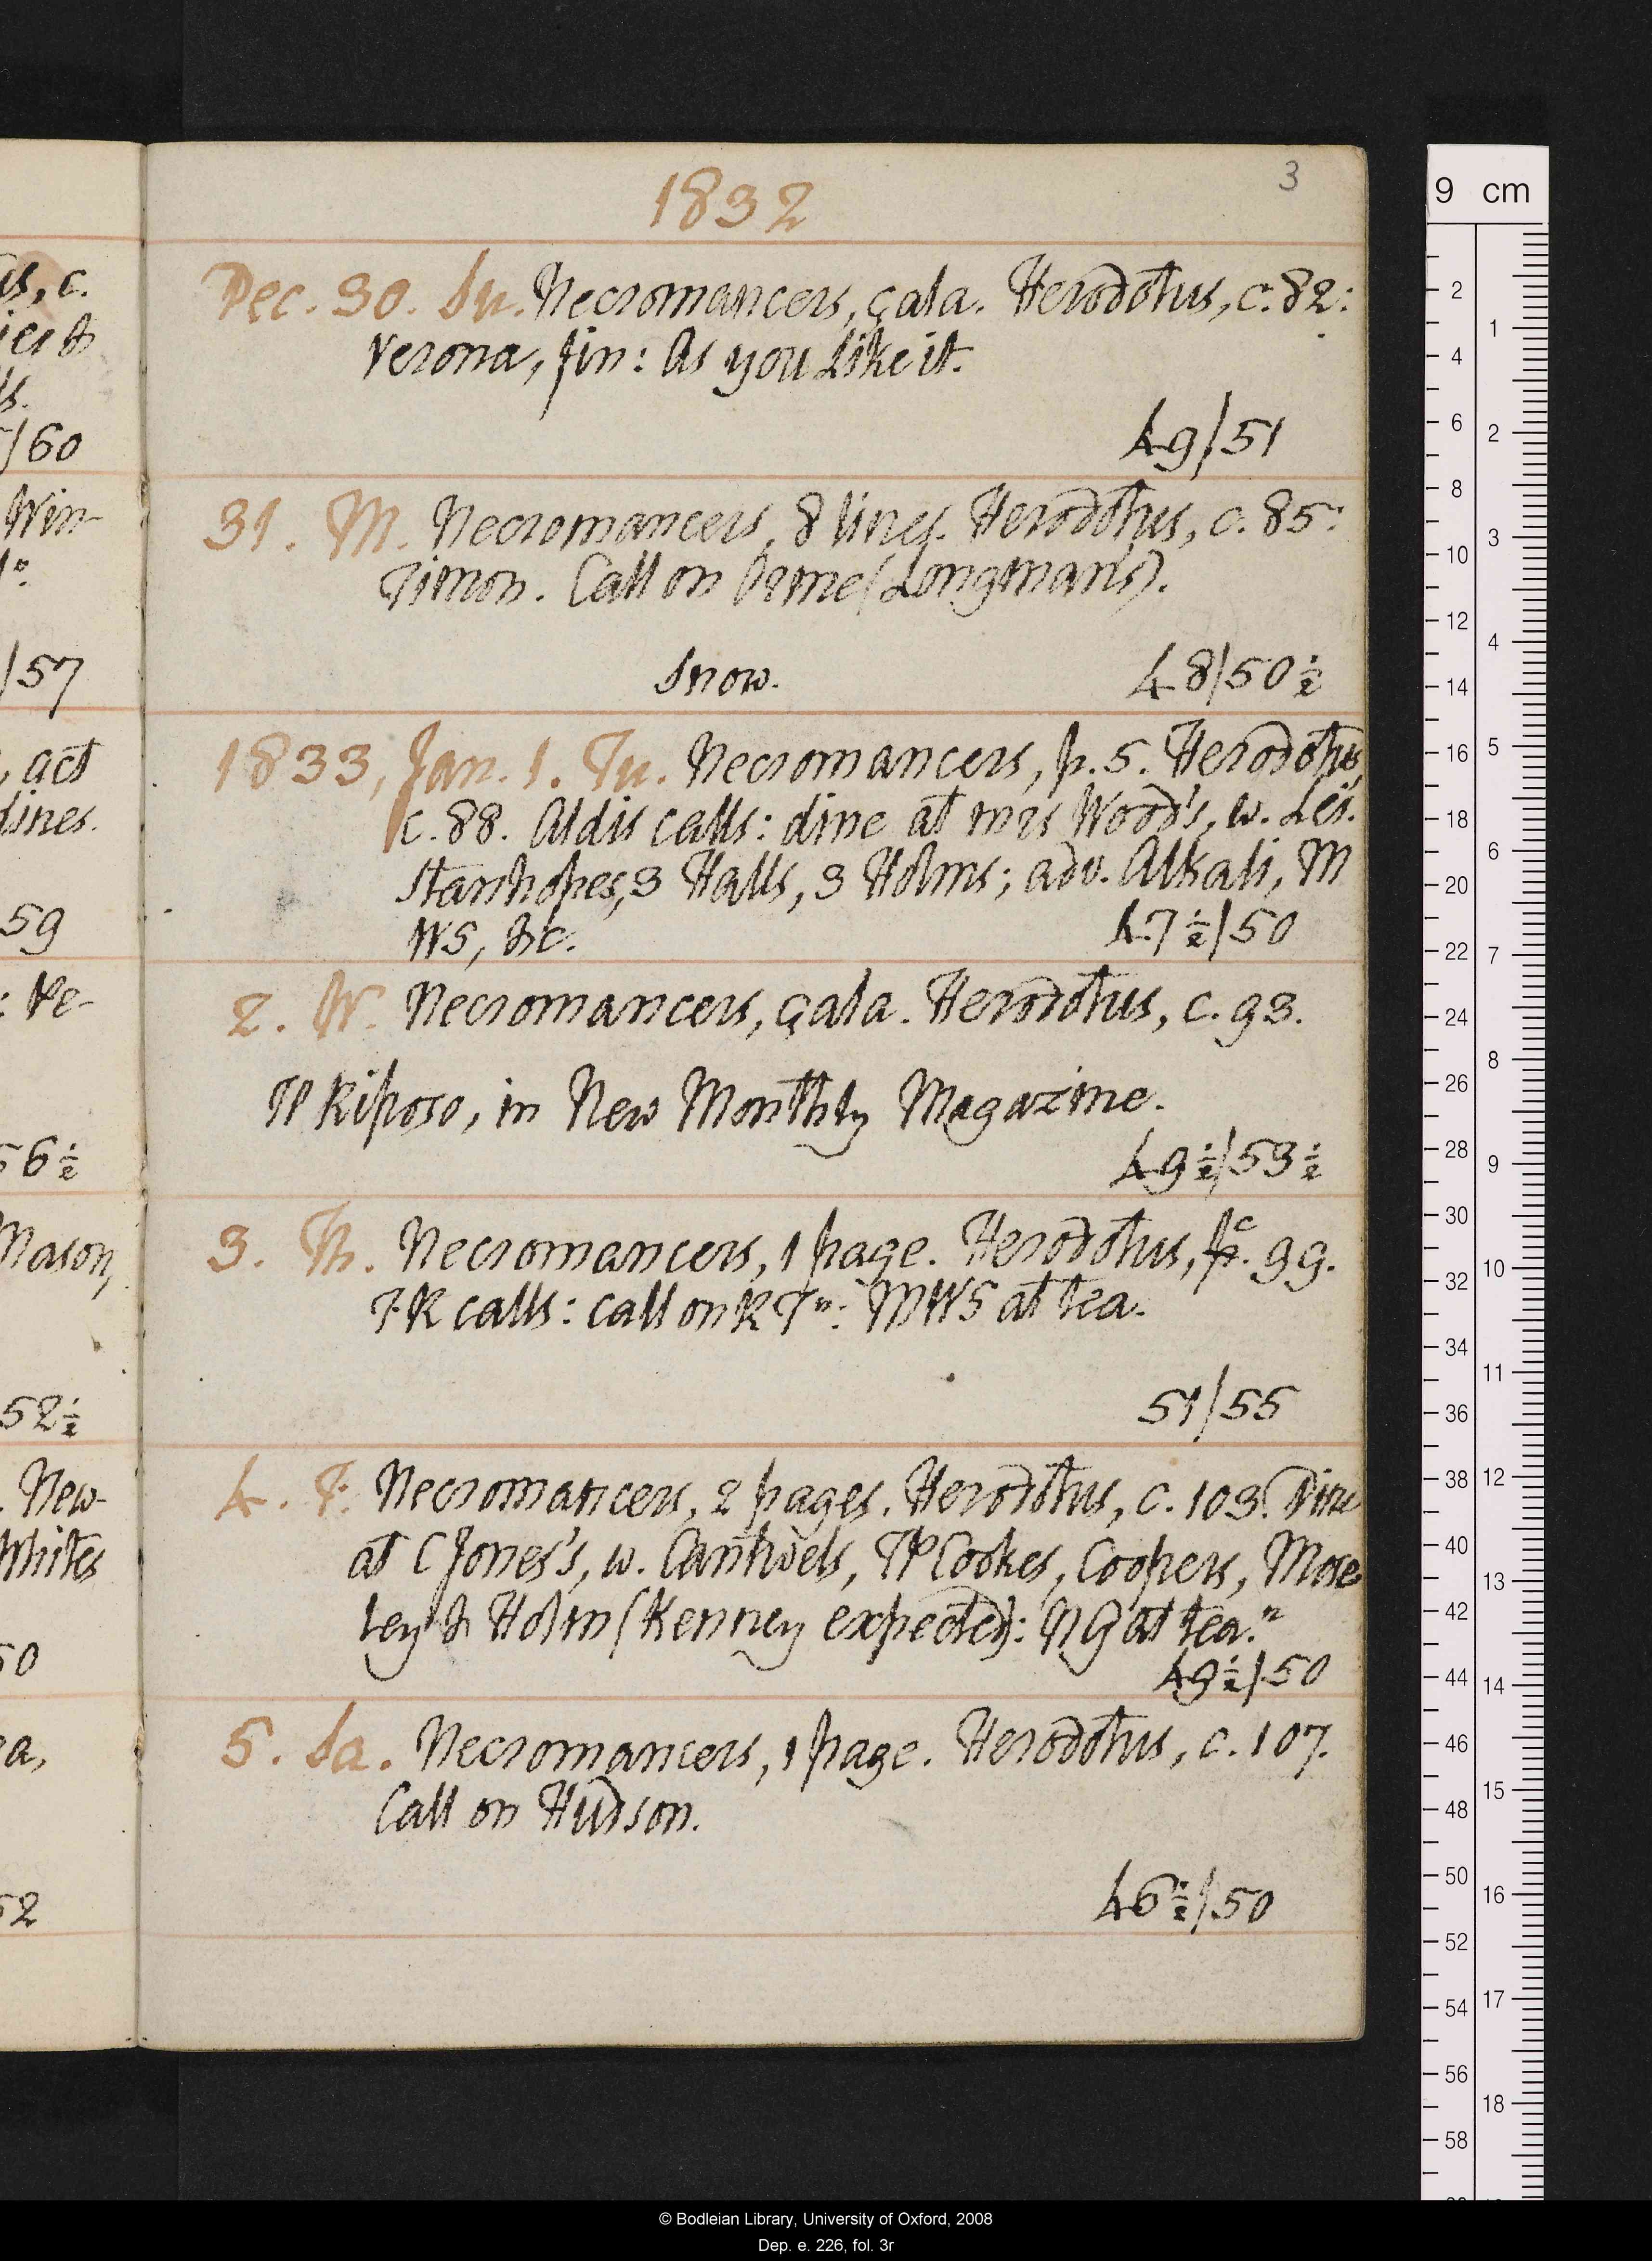 us, c.
ies &
ls.
/60
Win-
/57
, act
lines.
59
: Ve-
56½
Mason,
52½
. New-
Whites
50
ea,
52
3
1832
Dec. 30. Su. Necromancers, çala. Herodotus, c. 82:
Verona, fin: As you Like it.
49/51
31. M. Necromancers, 8 lines. Herodotus, c. 85:
Timon. Call on Orme (Longman's).
Snow. 48/50½
1833, Jan. 1. Tu. Necromancers, p. 5. Herodotus,
c. 88. Aldis calls: dine at mrs Wood's, w. Lei.
Stanhopes, 3 Halls, 3 Holms; adv. Alkali, M
WS, &c. 47½/50
2. W. Necromancers, çala. Herodotus, c. 93.
Il Riposo, in New Monthly Magazine.
49½/53½
3. Th. Necromancers, 1 page. Herodotus, p. c. 99.
FK calls: call on K Tn: MWS at tea.
51/55
4. F. Necromancers, 2 pages. Herodotus, c. 103. Dine
at C Jones's, w. Cantwels, TP Cookes, Coopers, Mose
ley & Holm (Kenney expected): NG at tea.n
49½/50
5. Sa. Necromancers, 1 page. Herodotus, c. 107.
Call on Hudson.
46½/50
9 cm
2
4
6
8
10
12
14
16
18
20
22
24
26
28
30
32
34
36
38
40
42
44
46
48
50
52
54
56
58
1
2
3
4
5
6
7
8
9
10
11
12
13
14
15
16
17
18
© Bodleian Library, University of Oxford, 2008
Dep. e. 226, fol. 3r